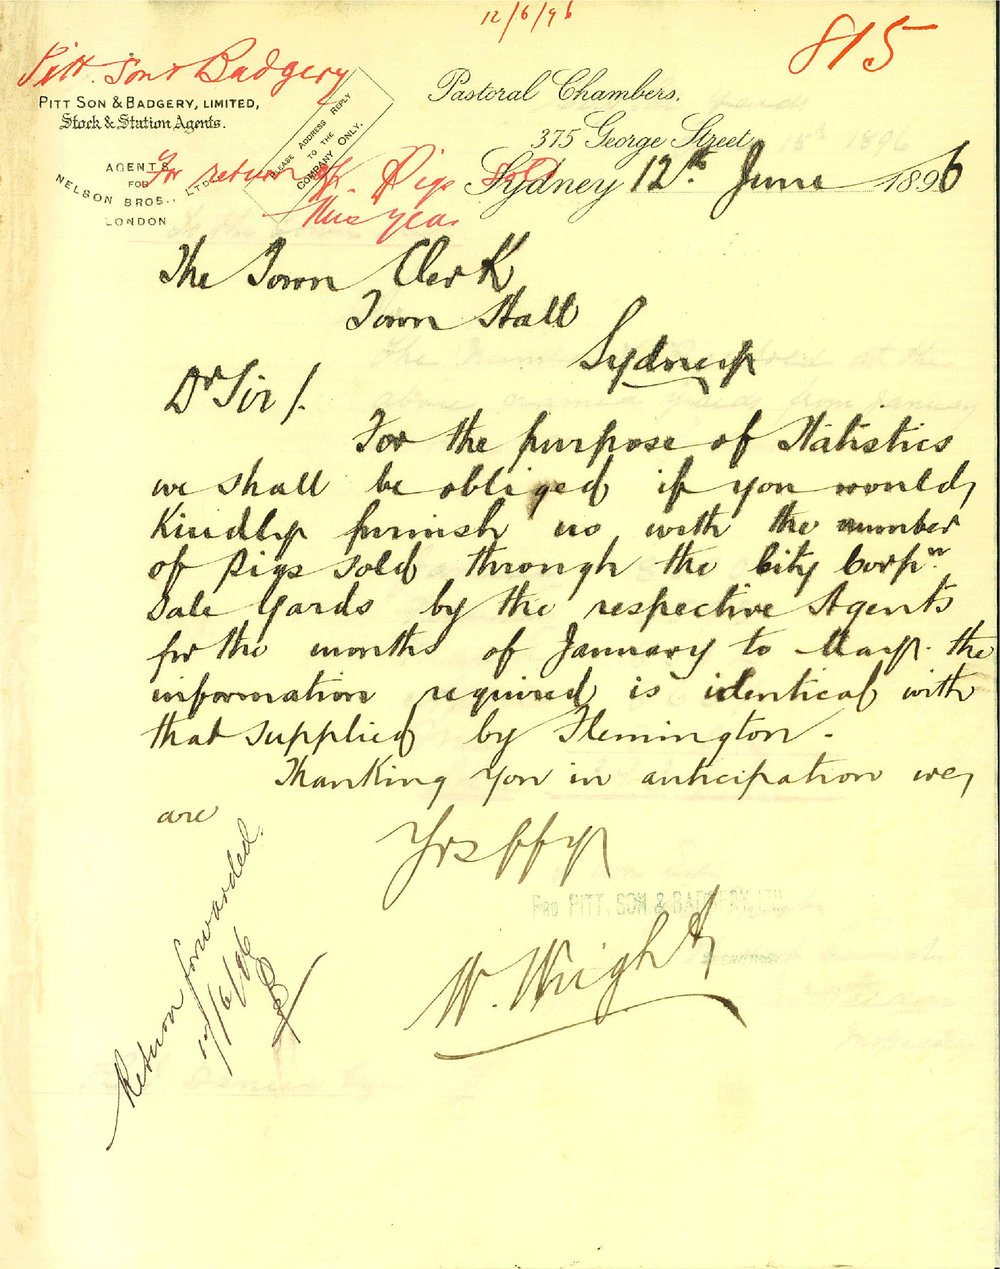 12/6/96
815
Pitt. Son & Badgery
PITT SON & BADGERY, LIMITED,
Stock & Station Agents.
AGENTS
FOR
NELSON BROS., LTD
LONDON
PLEASE ADDRESS REPLY
TO THE
COMPANY ONLY.
Pastoral Chambers.
375 George Street
Sydney 12th June 1896
For return of Pigs sold
this year
The Town Clerk
Town Hall
Sydney
Dr Sir/.
For the purpose of Statistics
we shall be obliged if you would,
Kindly furnish us with the number
of Pigs sold through the City Corpn.
Sale Yards by the respective Agents
for the months of January to May. the
information required is identical with
that supplied by Flemington.
Thanking you in anticipation we,
are
Yrs ffy
PRO PITT, SON & BADGERY, LTD
W. Wright
Return forwarded.
/6/96